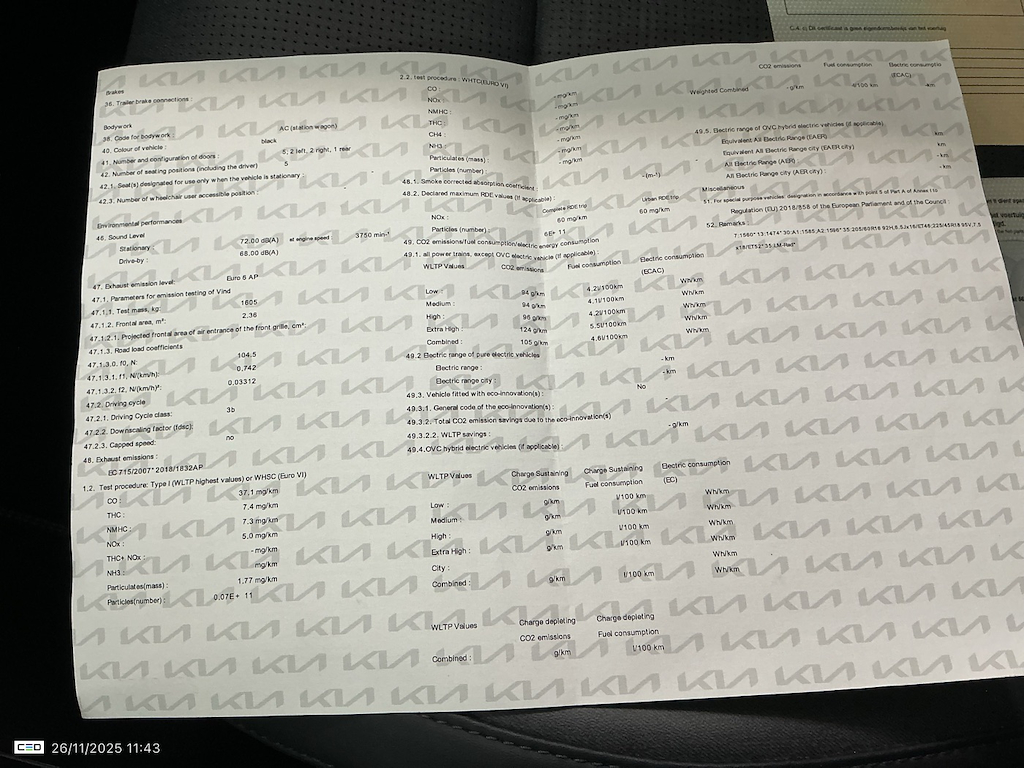 C.4. c) Dit certificaat is geen eigendomsbewijs van het voertuig
Brakes
36. Trailer brake connections :
Bodywork
38. Code for bodywork : AC (station wagon)
40. Colour of vehicle : black
41. Number and configuration of doors : 5, 2 left, 2 right, 1 rear
42. Number of seating positions (including the driver) 5
42.1. Seat(s) designated for use only when the vehicle is stationary : -
42.3. Number of wheelchair user accessible position : -
Environmental performances
46. Sound Level
Stationary : 72.00 dB(A) at engine speed 3750 min-¹
Drive-by : 68.00 dB(A)
47. Exhaust emission level: Euro 6 AP
47.1. Parameters for emission testing of Vind
47.1.1. Test mass, kg: 1605
47.1.2. Frontal area, m²: 2.36
47.1.2.1. Projected frontal area of air entrance of the front grille, cm²:
47.1.3. Road load coefficients
47.1.3.0. f0, N: 104.5
47.1.3.1. f1, N/(km/h): 0.742
47.1.3.2. f2, N/(km/h)²: 0.03312
47.2. Driving cycle
47.2.1. Driving Cycle class: 3b
47.2.2. Downscaling factor (fdsc):
47.2.3. Capped speed: no
48. Exhaust emissions :
EC 715/2007*2018/1832AP
1.2. Test procedure: Type I (WLTP highest values) or WHSC (Euro VI)
CO : 37.1 mg/km
THC : 7.4 mg/km
NMHC : 7.3 mg/km
NOx : 5.0 mg/km
THC+ NOx : - mg/km
NH3 : mg/km
Particulates(mass) : 1.77 mg/km
Particles(number) : 0.07E+ 11
2.2. Test procedure : WHTC(EURO VI)
CO : - mg/km
NOx : - mg/km
NMHC : - mg/km
THC : - mg/km
CH4 : - mg/km
NH3 : - mg/km
Particulates (mass) : - mg/km
Particles (number) :
48.1. Smoke corrected absorption coefficient : -(m-¹)
48.2. Declared maximum RDE values (if applicable) :
Complete RDE trip Urban RDE trip
NOx : 60 mg/km 60 mg/km
Particles (number) : 6E+ 11
49. CO2 emissions/fuel consumption/electric energy consumption
49.1. all power trains, except OVC electric vehicle (if applicable) :
WLTP Values CO2 emissions Fuel consumption Electric consumption
(ECAC)
Low : 94 g/km 4.2l/100km Wh/km
Medium : 94 g/km 4.1l/100km Wh/km
High : 96 g/km 4.2l/100km Wh/km
Extra High : 124 g/km 5.5l/100km Wh/km
Combined : 105 g/km 4.6l/100km Wh/km
49.2 Electric range of pure electric vehicles
Electric range : - km
Electric range city : - km
49.3. Vehicle fitted with eco-innovation(s) : No
49.3.1. General code of the eco-innovation(s) : -
49.3.2. Total CO2 emission savings due to the eco-innovation(s)
49.3.2.2. WLTP savings : - g/km
49.4.OVC hybrid electric vehicles (if applicable) :
WLTP Values Charge Sustaining Charge Sustaining Electric consumption
CO2 emissions Fuel consumption (EC)
Low : g/km l/100 km Wh/km
Medium : g/km l/100 km Wh/km
High : g/km l/100 km Wh/km
Extra High : g/km l/100 km Wh/km
City : Wh/km
Combined : g/km l/100 km Wh/km
WLTP Values Charge depleting Charge depleting
CO2 emissions Fuel consumption
Combined : g/km l/100 km
CO2 emissions Fuel consumption Electric consumptio
(ECAC)
Weighted Combined - g/km l/100 km -km
49.5. Electric range of OVC hybrid electric vehicles (if applicable)
Equivalent All Electric Range (EAER) km
Equivalent All Electric Range city (EAER city) : km
All Electric Range (AER) - km
All Electric Range city (AER city) : - km
Miscellaneous
51. For special purpose vehicles: designation in accordance with point 5 of Part A of Annex I to
Regulation (EU) 2018/858 of the European Parliament and of the Council :
52. Remarks :
KIA
CEO 26/11/2025 11:43